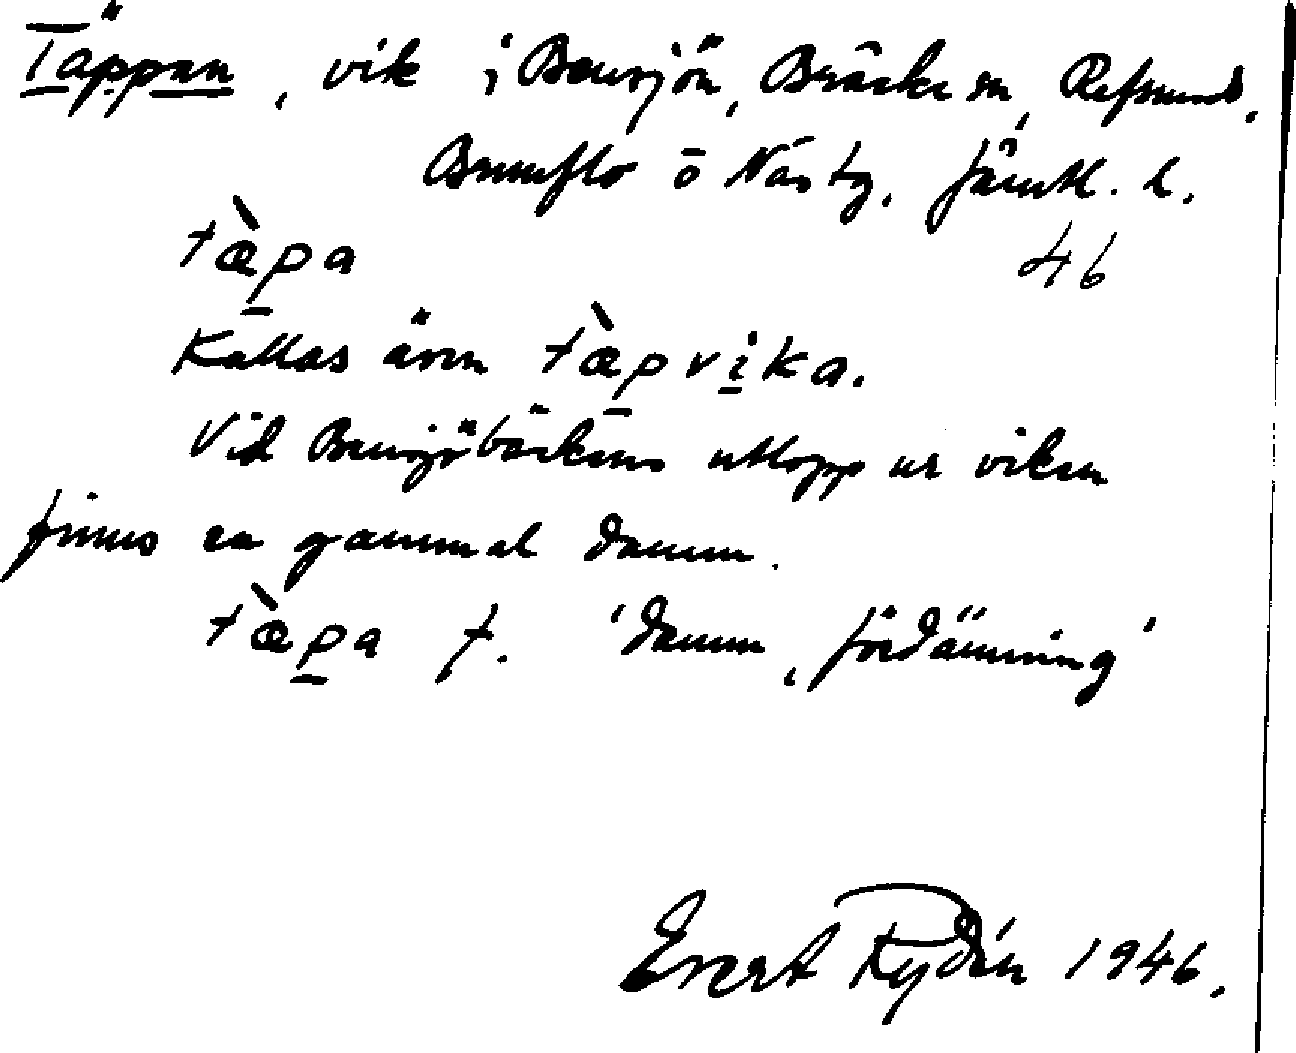 Täppan, vik i Bensjön, Bräcke sn, Refsunds,
Brunflo o Näs tg. Jämtl. l.
tæ̀pa 46
Kallas även tæ̀pvika.
Vid Bensjöbäckens utlopp ur viken
finns en gammal damm.
tæ̀pa f. 'damm, fördämning'
Evert Rydén 1946.